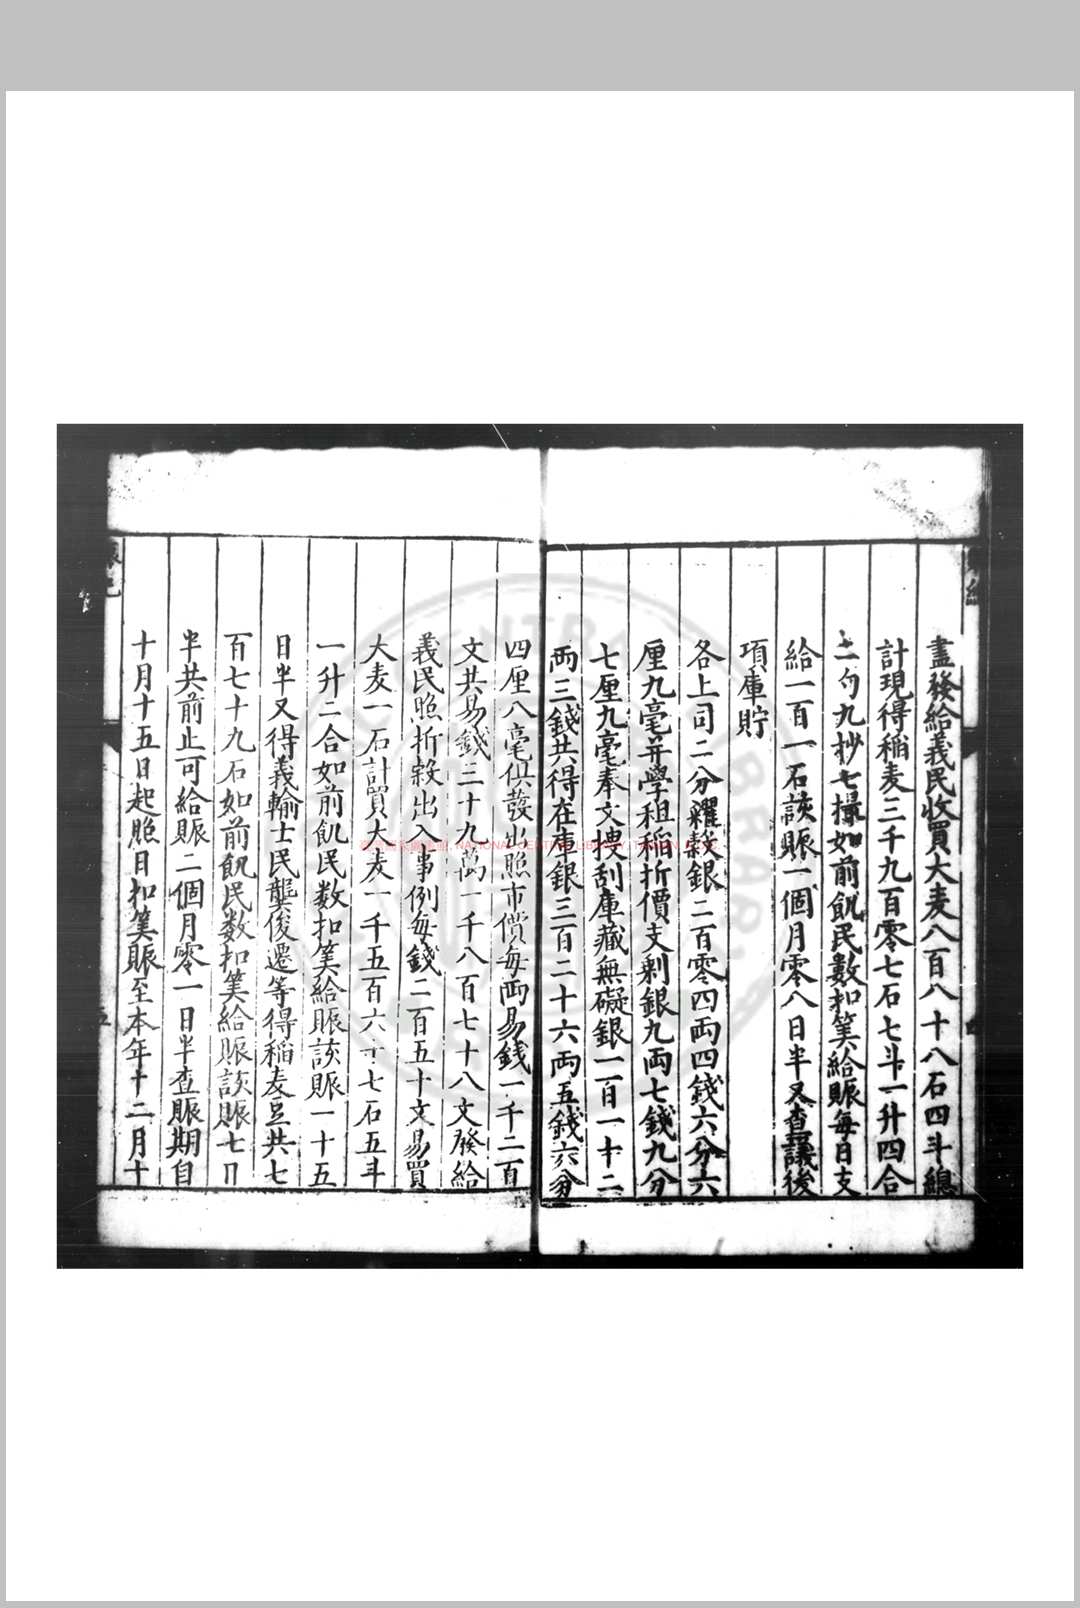 盡發給義民收買大麦八百八十八石四斗總
計現得稲麦三千九百零七石七斗一升四合
二勺九抄七撮如前飢民數扣筭給賑每日支
給一百一石該賑一個月零八日半又查議後
項庫貯
各上司二分糴穀銀二百零四両四錢六分六
厘九毫并學租稲折價支剩銀九両七錢九分
七厘九毫奉文搜刮庫藏無礙銀一百一十二
両三錢共得在庫銀三百二十六両五錢六分
四厘八毫俱發出照市價每両易錢一千二百
文共易錢三十九萬一千八百七十八文發給
義民照折穀出入事例每錢二百五十文易買
大麦一石計買大麦一千五百六十七石五斗
一升二合如前飢民数扣筭給賑該賑一十五
日半又得義輸士民龔俊遷等得稲麦豆共七
百七十九石如前飢民数扣筭給賑該賑七日
半共前止可給賑二個月零一日半查賑期自
十月十五日起照日扣筭賑至本年十二月十
NATIONAL CENTRAL LIBRARY